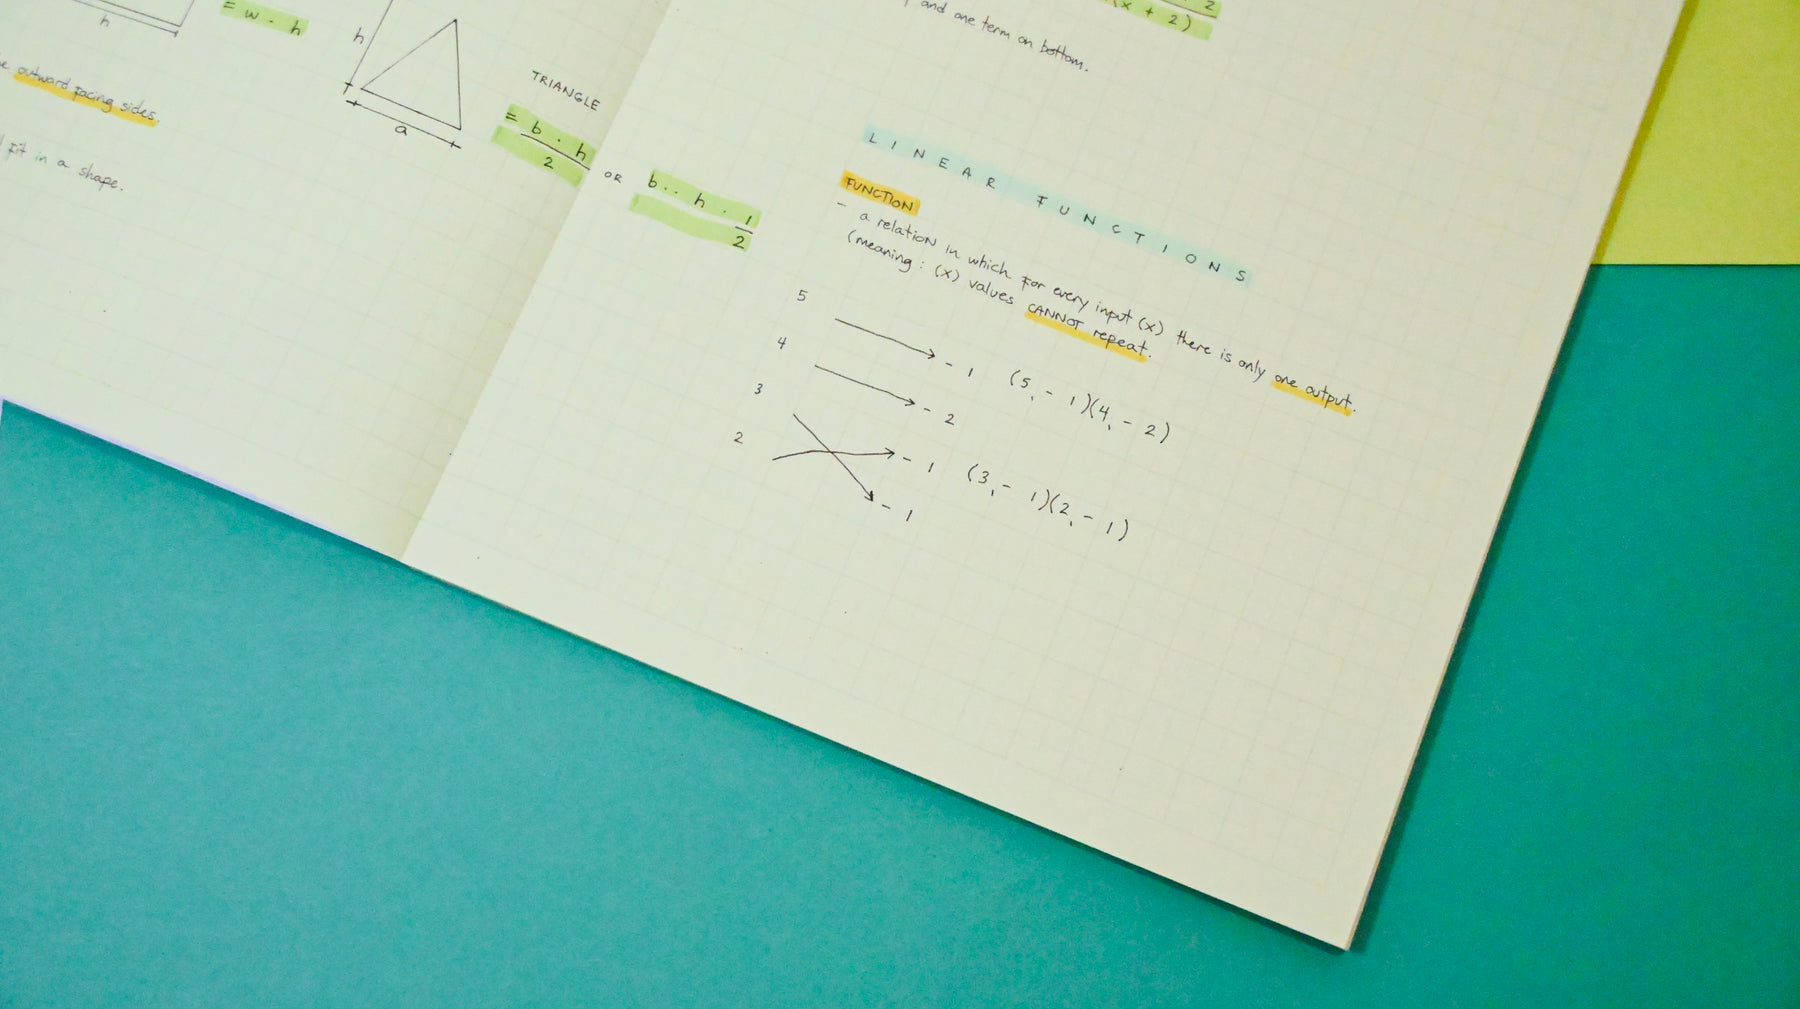 h
= w · h
outward facing sides.
fit in a shape.
h
a
TRIANGLE
= b · h
2
OR
b · · h · 1
2
2
(x + 2)
and one term on bottom.
LINEAR FUNCTIONS
FUNCTION
- a relation in which for every input (x) there is only one output.
(meaning : (x) values CANNOT repeat.
5
4
3
2
- 1 (5, - 1)(4, - 2)
- 2
- 1 (3, - 1)(2, - 1)
- 1